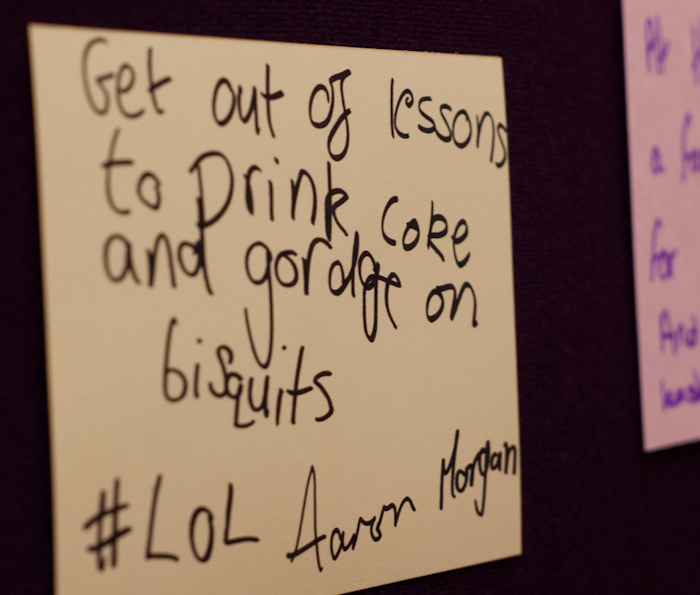 Get out of lessons
to Drink coke
and gordge on
bisquits
#LOL Aaron Morgan
a
for